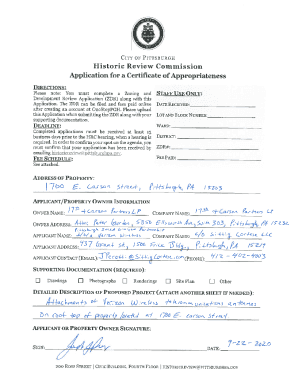 CITY OF PITTSBURGH
Historic Review Commission
Application for a Certificate of Appropriateness
DIRECTIONS:
Please note: You must complete a Zoning and
Development Review Application (ZDR) along with this
Application. The ZDR can be filed and fees paid online
after creating an account at OneStopPGH. Please upload this
Application when submitting the ZDR along with your
supporting documentation.
DEADLINE:
Completed applications must be received at
business days prior to the HRC hearing, when
required. In order to confirm your spot on the agenda, you
must confirm that your application has been received by
emailing
FEE SCHEDULE:
See attached.
STAFF USE ONLY:
DATE RECEIVED:
LOT AND BLOCK NUMBER:
WARD:
DISTRICT:
ZDR#:
FEE PAID:
ADDRESS OF PROPERTY:
1700 E. Carson Street, Pittsburgh, PA 15203
APPLICANT/PROPERTY OWNER INFORMATION
OWNER NAME: 17th & Carson Partners LP COMPANY NAME: 17th & Carson Partners LP
OWNER ADDRESS: Suite
APPLICANT NAME: Verizon Wireless COMPANY NAME: c/o Sittig Cortese LLC
APPLICANT ADDRESS: 437 Grant St, 1500 Frick Bldg., Pittsburgh, PA 15219
APPLICANT CONTACT (EMAIL) (PHONE) 412-402-4003
SUPPORTING DOCUMENTATION (REQUIRED)
Drawings Photographs Renderings Site Plan Other
DETAILED DESCRIPTION OF PROPOSED PROJECT (ATTACH ANOTHER SHEET IF NEEDED):
Attachments of Verizon Wireless telecommunications antennas
on roof top of property located at 1700 E. Carson Street
APPLICANT OR PROPERTY OWNER SIGNATURE:
SIGN: DATE: 9-22-2020
200 ROSS STREET | CIVIC BUILDING, FOURTH FLOOR | HISTORICREVIEW@PITTSBURGHPA.GOV